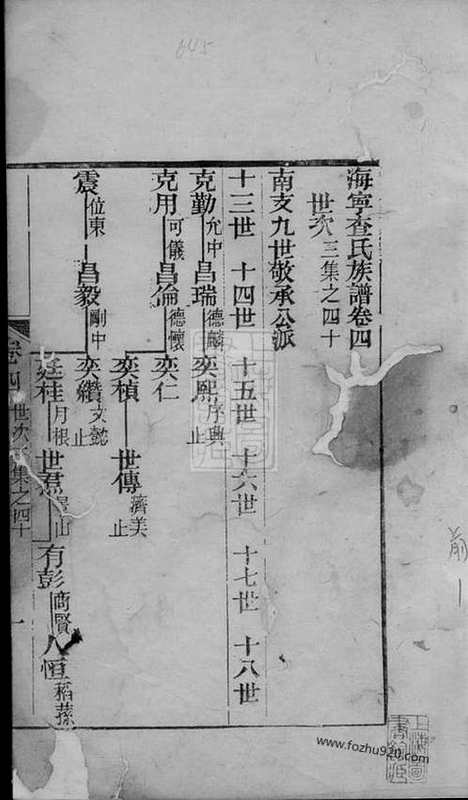 645
海寧查氏族譜卷四
世次三集之四十
南支九世敬承公派
十三世 十四世 十五世 十六世 十七世 十八世
克勤 允中 昌瑞 德麟 奕熙 序典 止
克用 可儀 昌倫 德懷 奕仁
奕楨 世傳 濟美 止
震 位東 昌毅 剛中 奕纘 文懿 止
桂 月根 世 山 有彭 商賢 恒 稻蓀
卷四 世次 集之四十 一
www.fozhu920.com